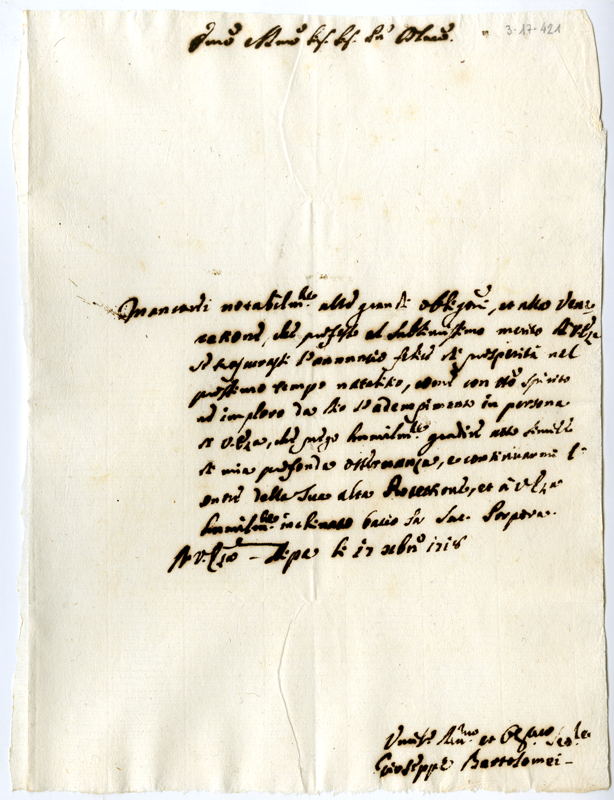 3-17-421
Mancarei notabilm.te alle grandi obligõni, et alla Vene-
razione, che professo al sublimissimo merito di V. Em.za
se l'annuntio felice di prosperità nel
prossimo tempo natalitio, come con tt.o spirito
ne imploro da Dio l'adempimento in persona
di V. Em.za, che priego humilm.te gradire atto simile
di mia profonda osservanza, e continuarmi l'
onore della Sua alta Protezione, et à V. Em.za
humilm.te inchinato bacio la Sac. Porpora.
Di V. Em.za Ripa li 17 xbre 1718
Humil. et
Giuseppe Bartolomei